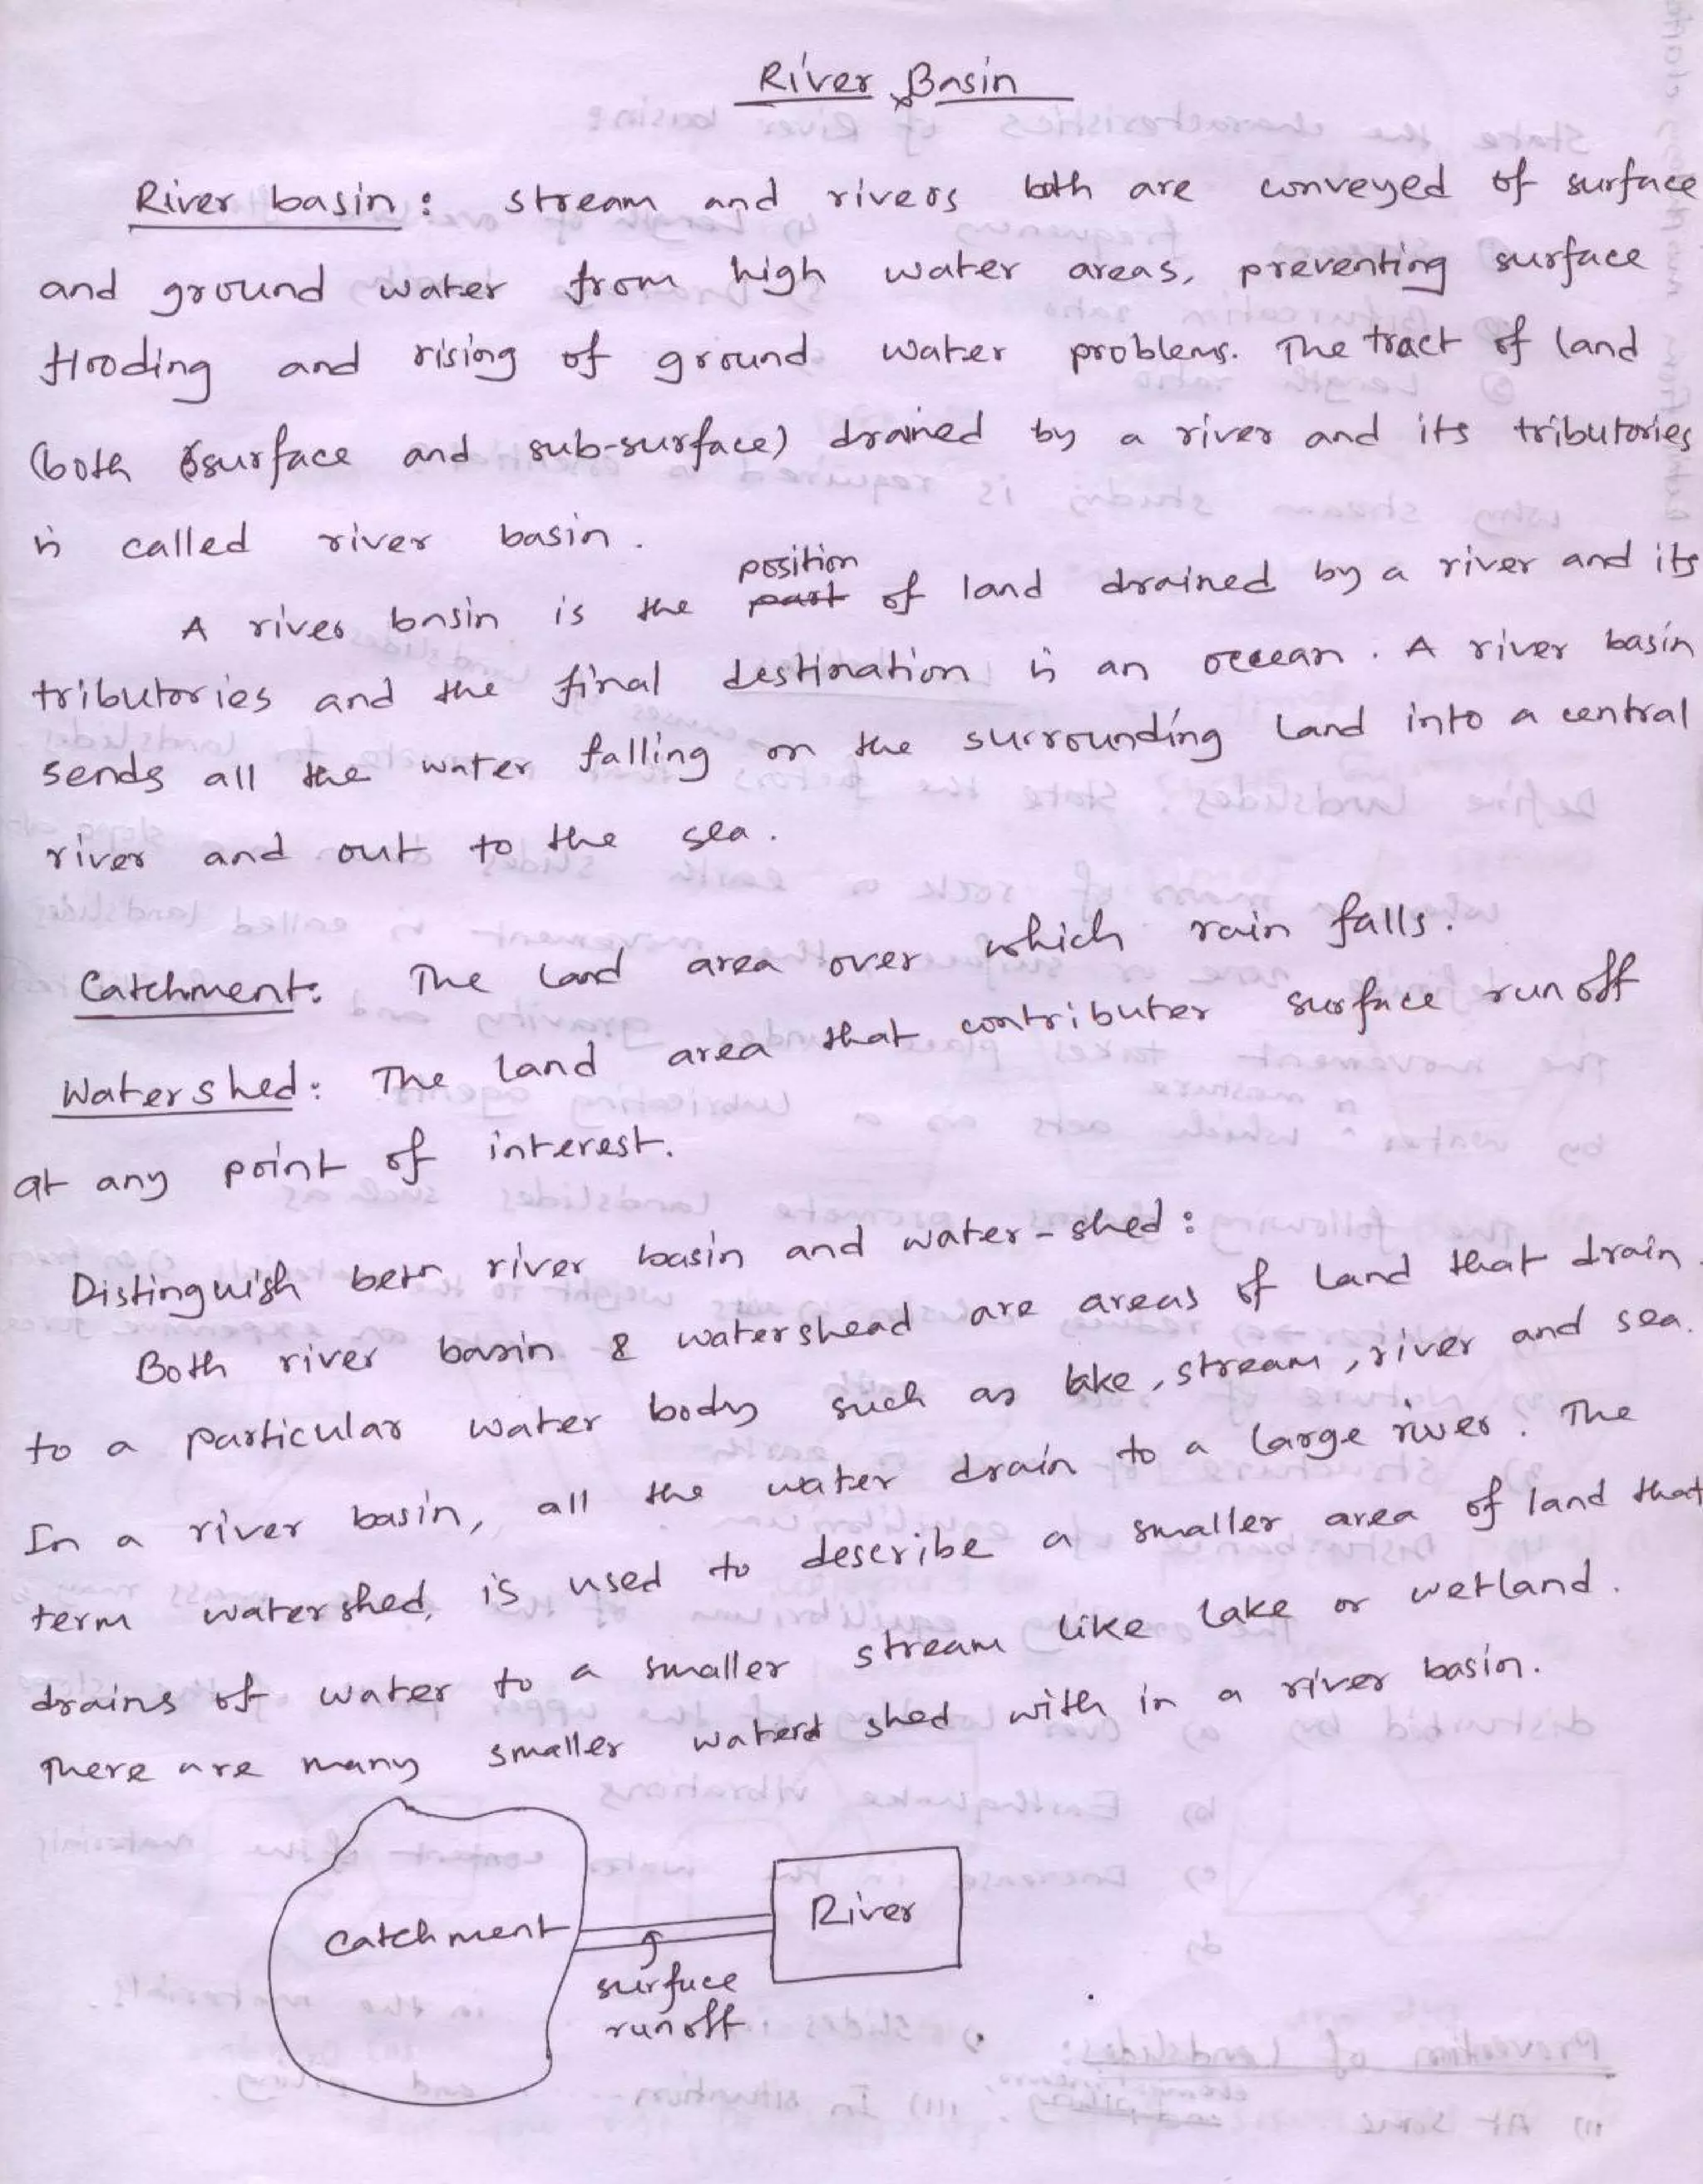 River Basin
River basin : stream and rivers both are conveyed of surface
and ground water from high water areas, preventing surface
flooding and rising of ground water problems. The tract of land
(both surface and sub-surface) drained by a river and its tributories
is called river basin.
A river basin is the position of land drained by a river and its
tributories and the final destination is an occean. A river basin
sends all the water falling on the surrounding land into a central
river and out to the sea.
Catchment: The land area over which rain falls.
Watershed: The land area that contributes surface runoff
at any point of interest.
Distinguish betn river basin and water-shed :
Both river basin & watershead are areas of land that drain
to a particular water body such as lake, stream, river and sea.
In a river basin, all the water drain to a large river. The
term watershed, is used to describe a smaller area of land that
drains of water to a smaller stream like lake or wetland.
There are many smaller waterd shed with in a river basin.
Catchment
River
surface
runoff